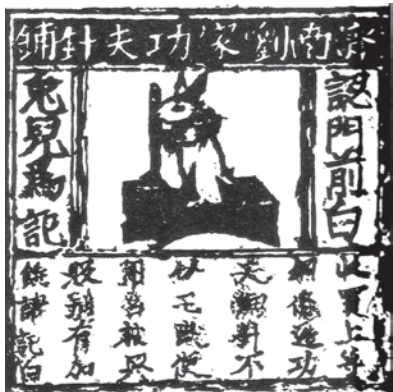 濟南劉家功夫針鋪
認門前白
兔兒為記
收買上等
鋼條造功
夫細針不
宅
使
別有加
饒請記白